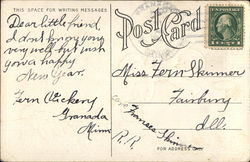 THIS SPACE FOR WRITING MESSAGES
Post Card
Dear little friend
I don't know you
very well, but wish
you a happy
New Year.
Fern Vickery
Granada
Minn
Miss Fern Skinner
Fairbury
Ill.
Care Frances Skinner
R.R.
FOR ADDRESS ONLY